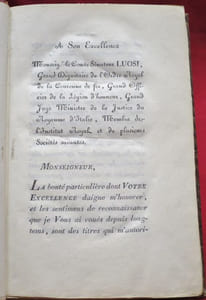 A Son Excellence
Monseig.r le Comte Sénateur LUOSI,
Grand Dignitaire de l'Ordre Royal
de la Couronne de fer, Grand Offi-
cier de la Légion d'honneur, Grand
Juge Ministre de la Justice du
Royaume d'Italie, Membre de
l'Institut Royal, et de plusieurs
Sociétés savantes.
MONSEIGNEUR,
LA bonté particulière dont VOTRE
EXCELLENCE daigne m'honorer,
et les sentimens de reconnaissance
que je Vous ai voués depuis long-
tems, sont des titres qui m'autori-